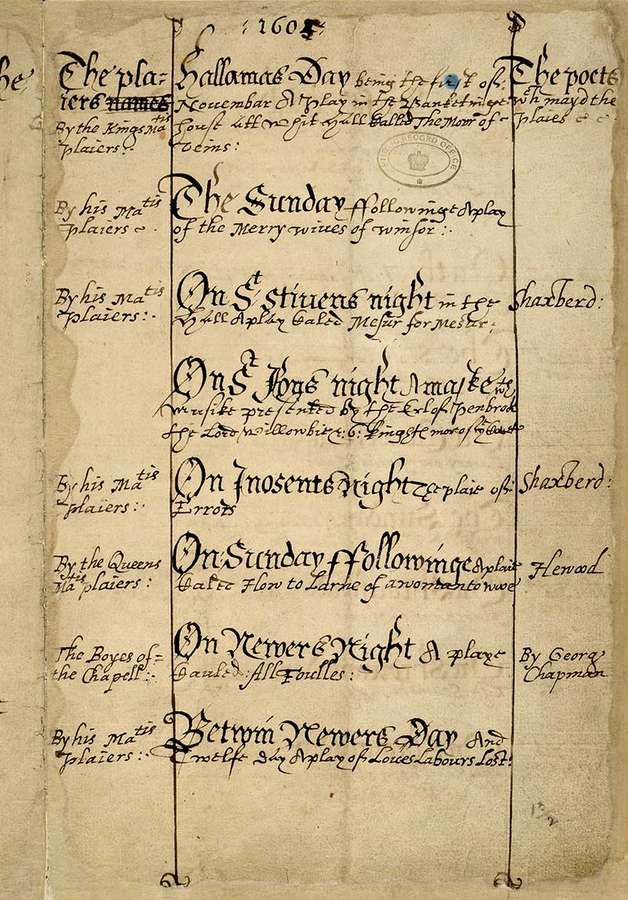 : 1605
The pla-
iers names
By the Kings Matis
plaiers:
Hallamas Day being the first of
Novembar A play in the Banketinge
house att Whit Hall Called The Moor of
Venis:
The poets
wch mayd the
plaies
PUBLIC RECORD OFFICE
By his Matis
plaiers:
The Sunday ffollowinge A play
of the Merry wives of winsor:
By his Matis
plaiers:
On St Stivens night in the
Hall A play Caled Mesur for Mesur:
Shaxberd:
On St Jons night A maske wth
musike presented by the Erl of Penbrok
the Lord Willowbie & 6 Knights more of ye Court
By his Matis
plaiers:
On Inosents Night The plaie of
Errors
Shaxberd:
By the Queens
Matis plaiers:
On Sunday ffollowinge A plaie
Caled How to Larne of a woman to wooe
Hewood
The Boyes of
the Chapell:
On Newers Night A playe
Cauled: All Foulles:
By Georg
Chapman
By his Matis
plaiers:
Betwin Newers Day And
Twelfe day A play of Loves Labours Lost: